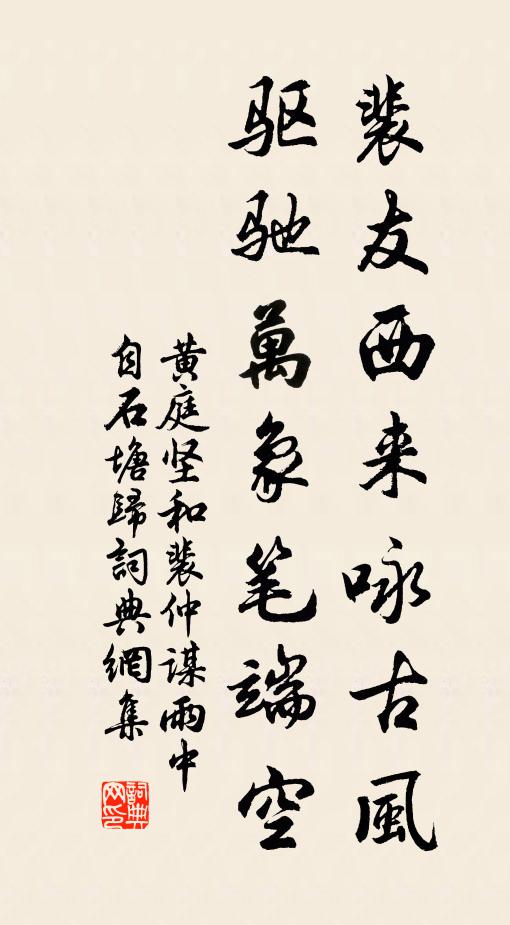 裴友西来咏古風
驱驰萬象笔端空
黄庭坚和裴仲谋雨中
自石塘歸詞典網集
詞典
网印